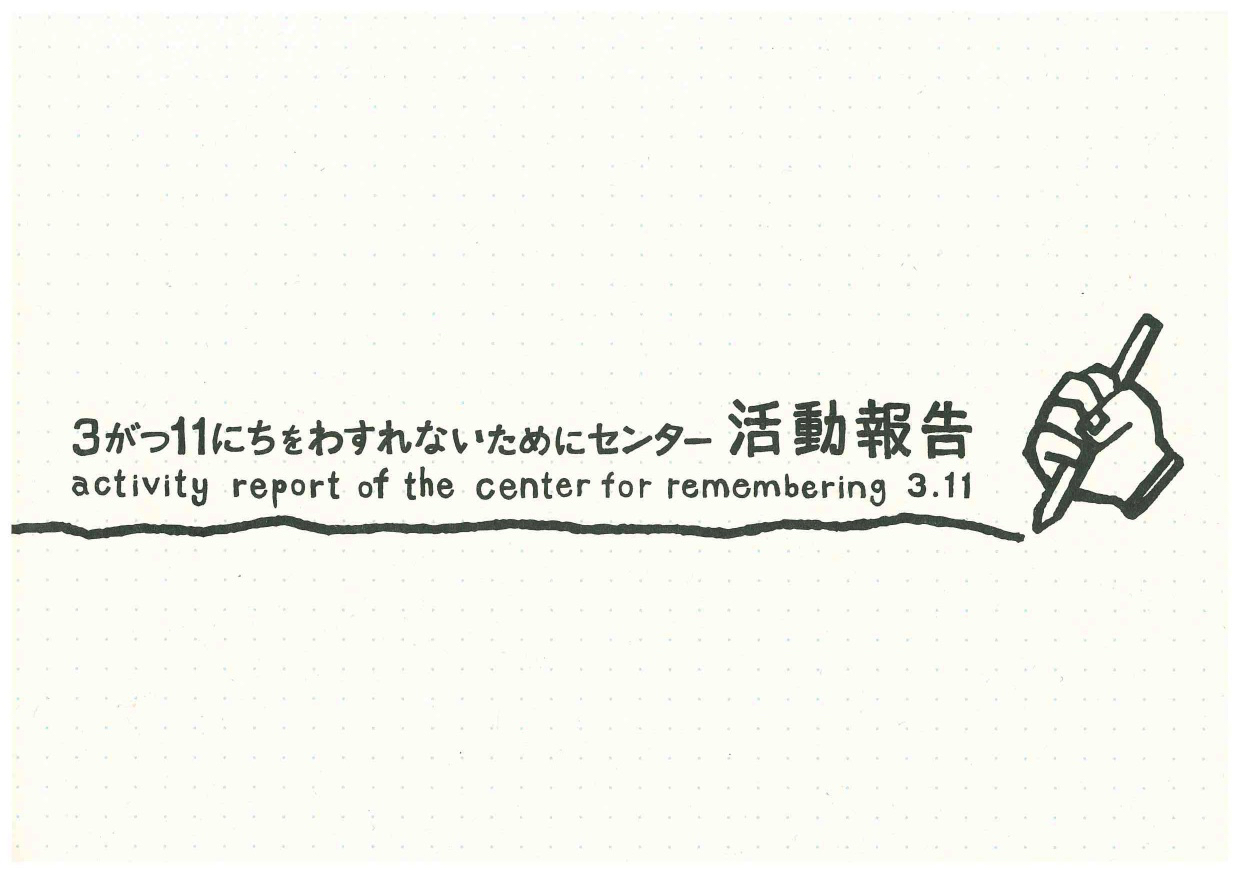 3がつ11にちをわすれないためにセンター 活動報告
activity report of the center for remembering 3.11